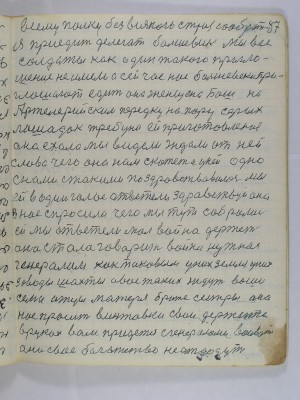 всему полку без всякого страх сообрат 57
Я приедит делегат балшевик мы все
солдаты как один такого пригло-
шение не имели сей час нас балшевики при
глошают едит она женщина Баш на
Артелерийским передку на пару серых
лошадок требуна ей приготовленае
она ехала мы видели ждали от ней
слово чего она нам скажет а у ней одно
снами стаками поздравствовалася мы
ей в один голос ответели здравствуй она
нас спросила чего мы тут собрали
ей мы ответели мол война держет
она стала говорит война нужная
генералам как таковым у них земли у них
заводы шахты а вас таких ждут ваши
семя отцы матеря братя сестры она
нас просит винтовки свои держите
в руках вам придется с генералами воевать
они свае богатство не отдадут